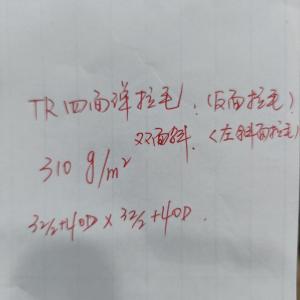 TR四面弹拉毛.(反面拉毛)
双面斜.(左斜面拉毛)
310 g/m²
32/2+40D×32/2+40D.